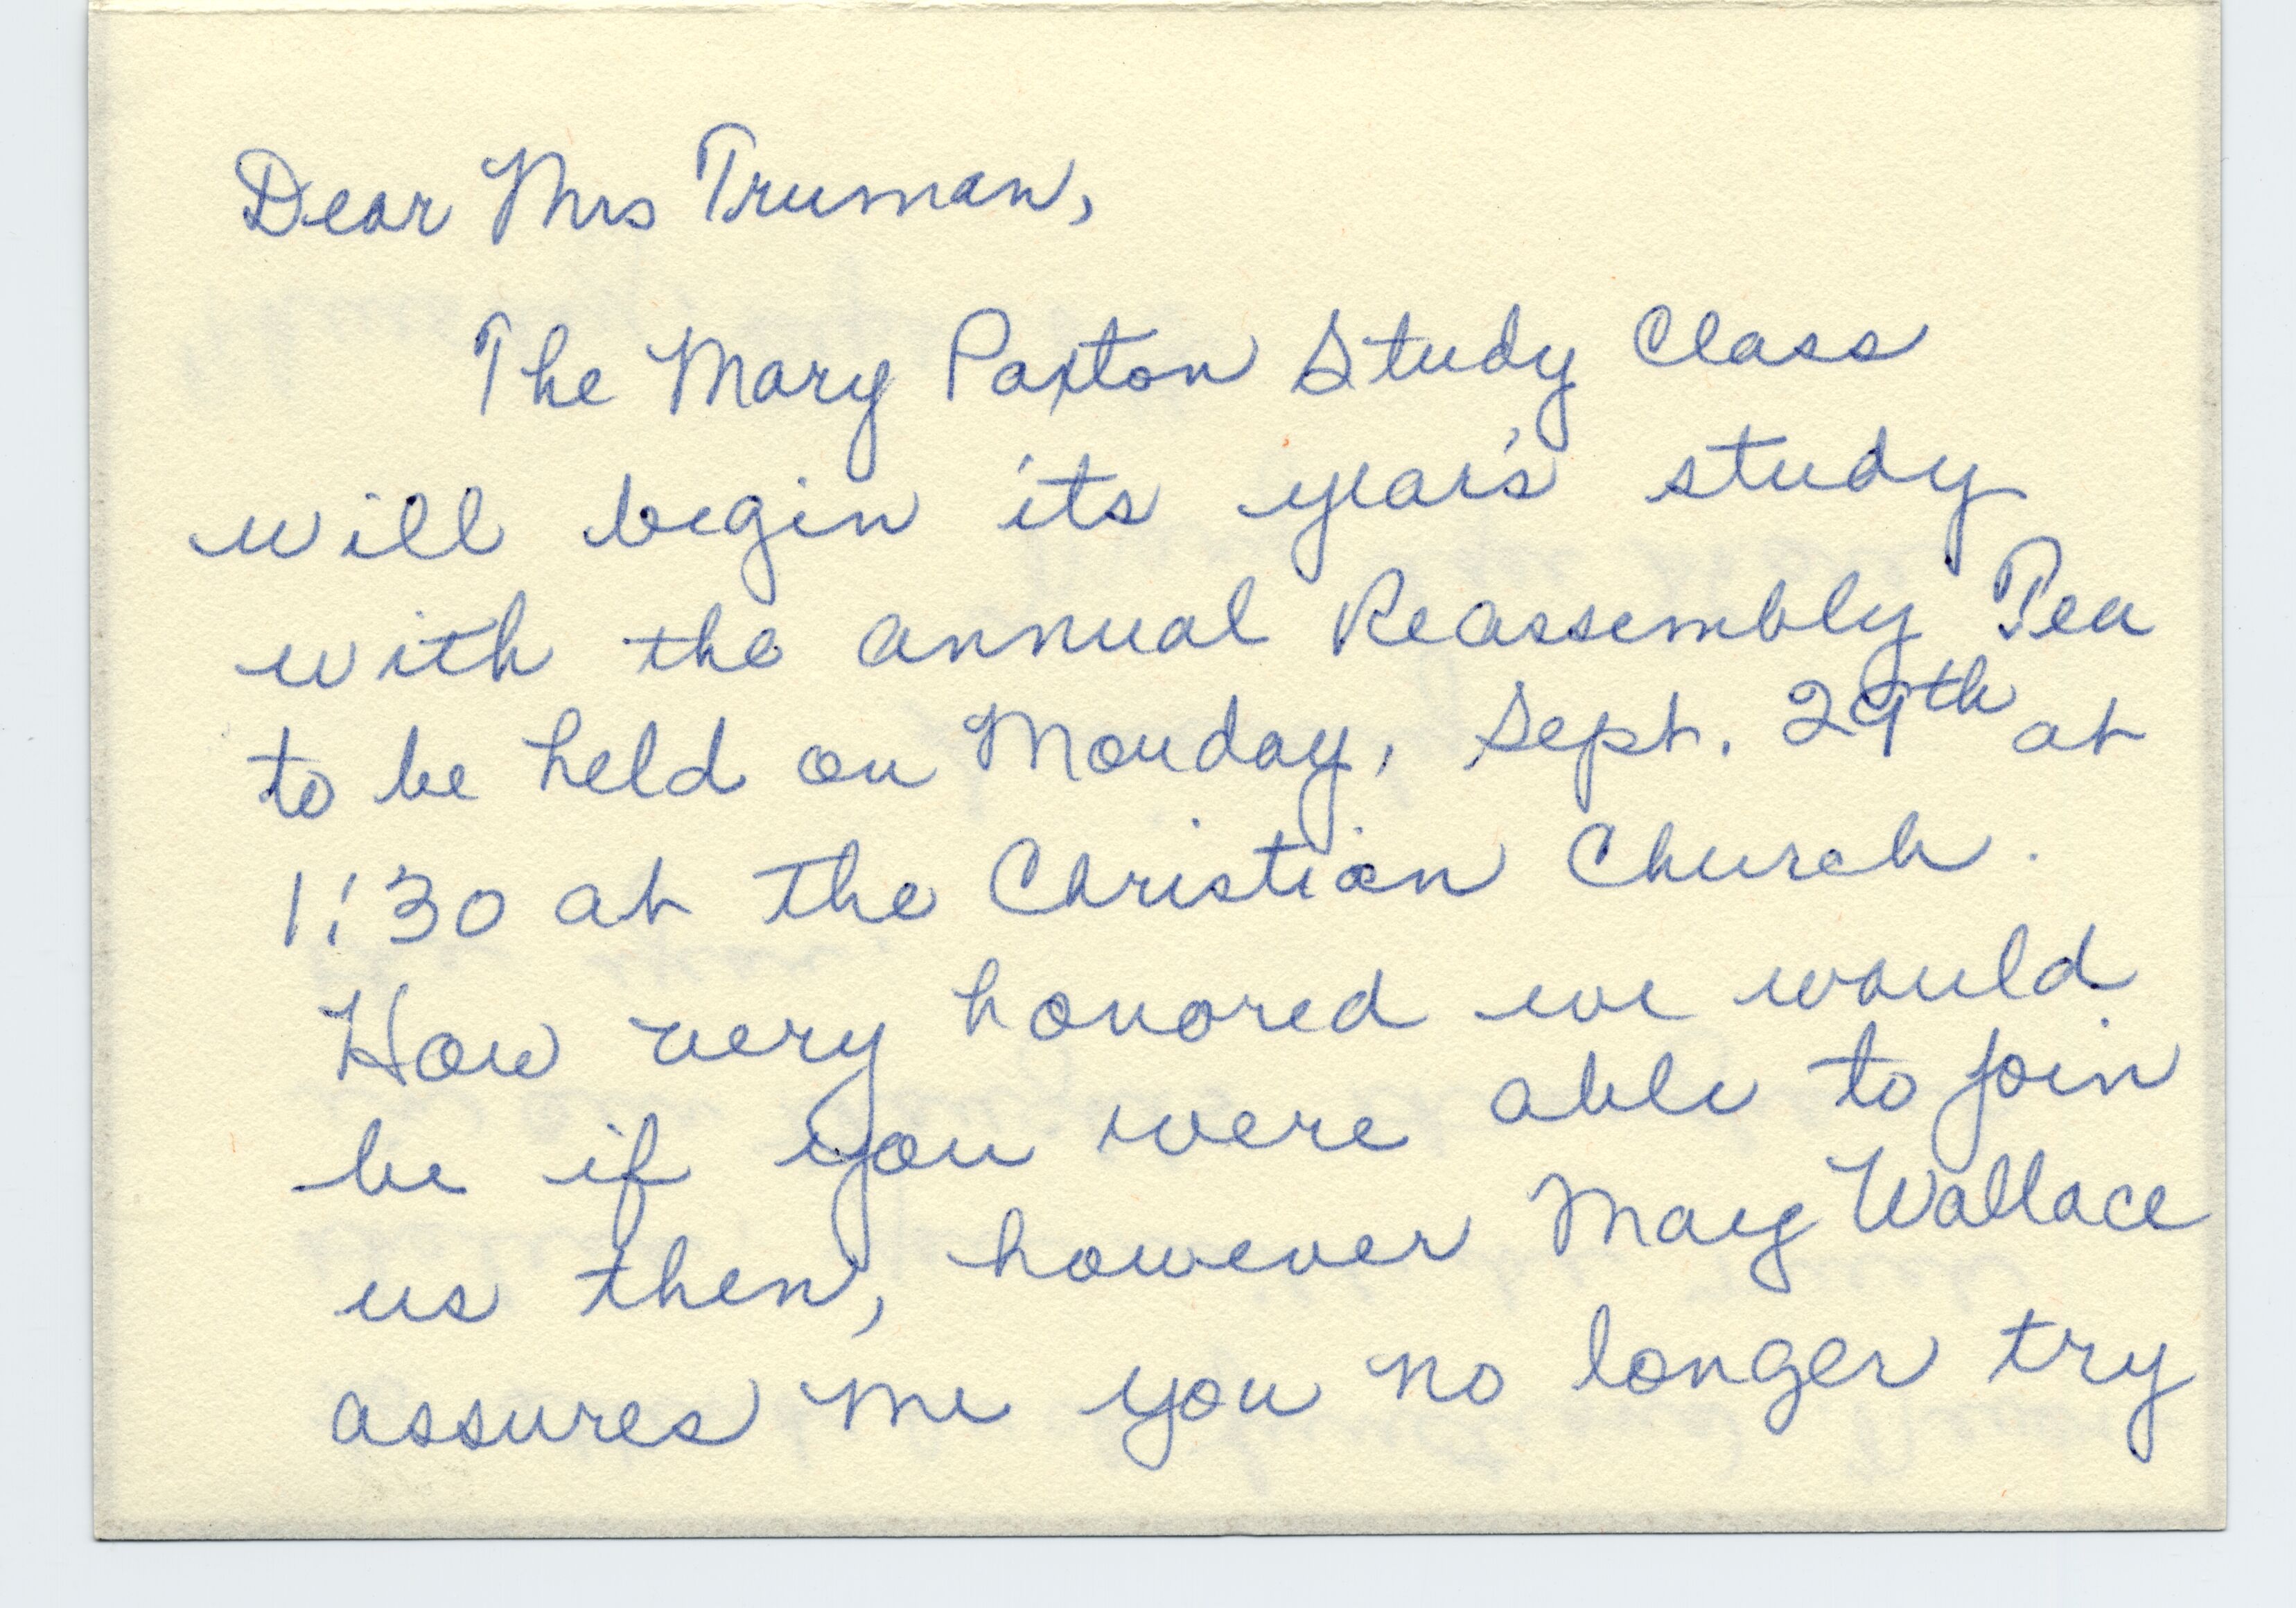 Dear Mrs Truman,
The Mary Paxton Study Class
will begin its year's study
with the annual Reassembly Tea
to be held on Monday, Sept. 29th at
1:30 at the Christian Church.
How very honored we would
be if you were able to join
us then, however Mary Wallace
assures me you no longer try